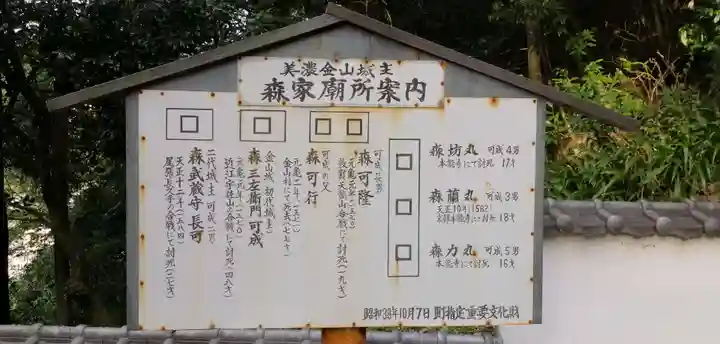 美濃金山城主
森家廟所案内
森坊丸 可成4男
本能寺にて討死 17才
森蘭丸 可成3男
天正10年(1582)
京都本能寺にて討死 18才
森力丸 可成5男
本能寺にて討死 16才
可成長男
森可隆
元亀元年(一五七〇)
敦賀天筒山合戦にて討死(一九才)
可成の父
森可行
元亀二年(一五七一)
金山村にて死去(七七才)
金山城(初代城主)
森三左衛門可成
元亀元年(一五七〇)
近江宇佐山の合戦にて討死(四八才)
二代城主 可成二男
森武蔵守長可
天正十二年(一五八四)
尾張長久手の合戦にて討死(二七才)
昭和38年10月7日 町指定重要文化財